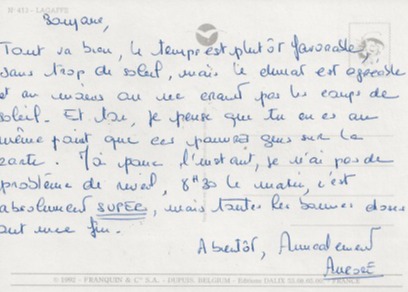 N° 413 - LAGAFFE
Bonjour,
Tout va bien, le temps est plutôt favorable
sans trop de soleil, mais le climat est agréable
et au moins on ne craint pas les coups de
soleil. Et toi, je pense que tu en es au
même point que ces pauvres gens sur la
carte. Moi pour l'instant, je n'ai pas de
problème de réveil, 8H30 le matin, c'est
absolument SUPER, mais toutes les bonnes choses
ont une fin.
A bientôt, Amicalement
© 1992 - FRANQUIN & C° S.A. - DUPUIS. BELGIUM - Editions DALIX - FRANCE